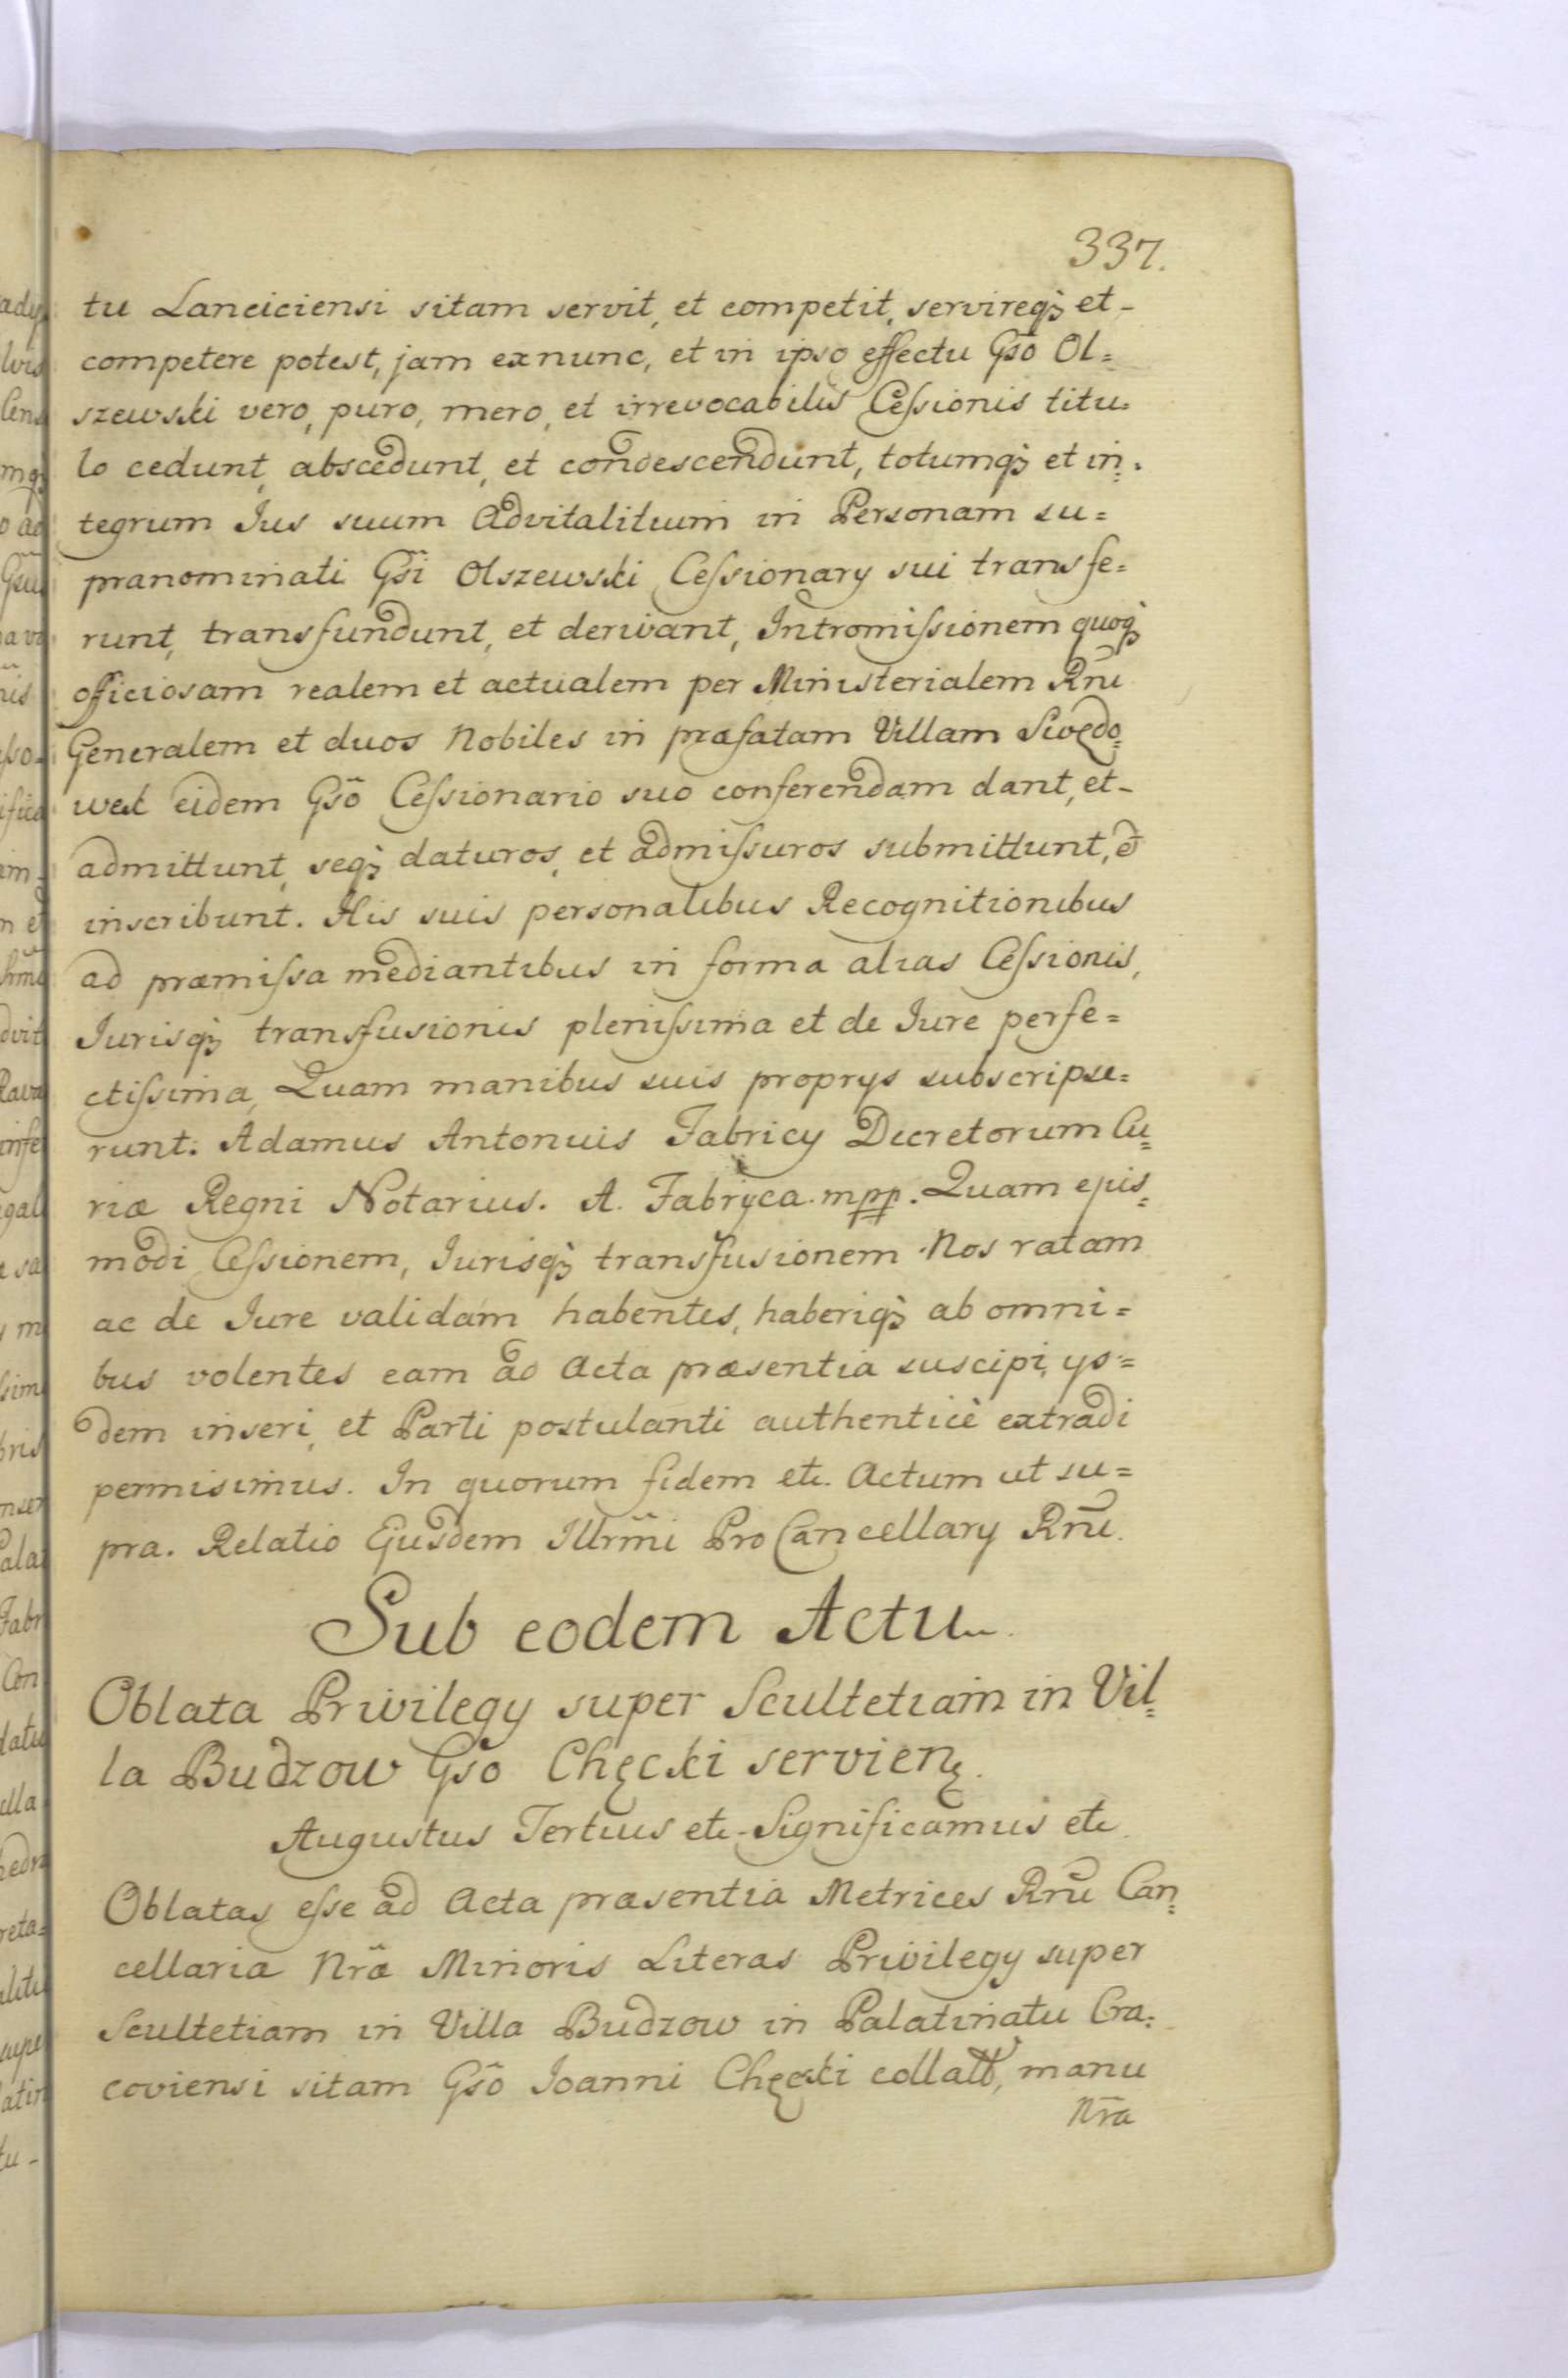 337.
tu Lanciciensi sitam servit, et competit, servireq₃ et-
competere potest, jam exnunc, et in ipso effectu Gsō Ol=
szewski vero, puro, mero, et irrevocabilis Cessionis titu=
lo cedunt, abscedunt, et condescendunt, totumq₃ et in=
tegrum Jus suum Advitalitium in Personam su=
pranominati Gsi Olszewski Cessionary sui transfe=
runt, transfundunt, et derivant, Intromissionem quoq₃
officiosam realem et actualem per Ministerialem Rnū
Generalem et duos Nobiles in præfatam Villam Swędo=
wek eidem Gsō Cessionario suo conferendam dant, et-
admittunt, seq₃ daturos, et admissuros submittunt, et
inscribunt. His suis personalibus Recognitionibus
ad præmissa mediantibus in forma alias Cessionis,
Jurisq₃ transfusionis plenissima et de Jure perfe=
ctissima, Quam manibus suis proprys subscripse=
runt. Adamus Antonius Fabricy Decretorum Cu=
riæ Regni Notarius. A. Fabryca mpp. Quam ejus=
modi Cessionem, Jurisq₃ transfusionem Nos ratam
ac de Jure validam habentes, haberiq₃ ab omni=
bus volentes eam ad Acta præsentia suscipi, ys=
dem inseri, et Parti postulanti authenticè extradi
permisimus. In quorum fidem etc. Actum ut su=
pra. Relatio Ejusdem Illrm̄i Pro Cancellary Rnū.
Sub eodem Actu
Oblata Privilegy super Scultetiam in Vil=
la Budzow Gso Chęcki servien
Augustus Tertius etc. Significamus etc
Oblatas esse ad Acta præsentia Metrices Rnū Can=
cellaria Nrā Minoris Literas Privilegy super
Scultetiam in Villa Budzow in Palatinatu Cra=
coviensi sitam Gsō Joanni Chęcki collat, manu
Nra